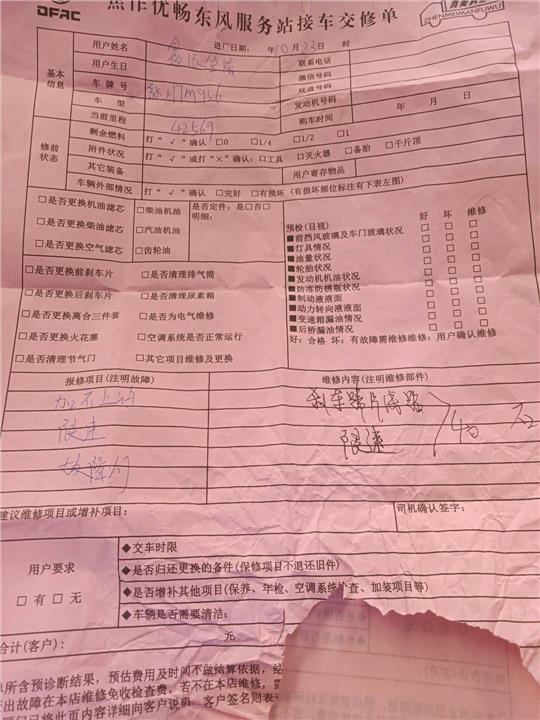 DFAC
焦作优畅东风服务站接车交修单
ZHENMEIWANFUWU
基本信息
用户姓名
进厂日期: 年10月23日 时
联系电话
用户生日
微信号码
车牌号
底盘号码
车型
发动机号码
当前里程 42569
购车时间 年 月 日
修前状态
剩余燃料 打“√”确认 □0 □1/4 □1/2 □1
附件状况 打“√”或打“×”确认: □工具 □灭火器 □备胎 □千斤顶
其它装备
用户寄存物品
车辆外部情况 打“√”确认 □完好 □有损坏(有损坏部位标注有下表左图)
□是否更换机油滤芯
□是否更换柴油滤芯
□是否更换空气滤芯
□柴油机油
□汽油机油
□齿轮油
是否定件: 是□否□
明细:
□是否更换前刹车片
□是否更换后刹车片
□是否更换离合三件套
□是否更换火花塞
□是否清理节气门
□是否清理排气筒
□是否清理尿素箱
□是否为电气维修
□空调系统是否正常运行
□其它项目维修及更换
预检(目视) 好 坏 维修
■前挡风玻璃及车门玻璃状况 □ □ □
■灯具情况 □ □ □
■油量状况 □ □ □
■轮胎状况 □ □ □
■发动机机油状况 □ □ □
■防冻防锈瓶状况 □ □ □
■制动液液面 □ □ □
■动力转向液液面 □ □ □
■变速箱漏油情况 □ □ □
■后桥漏油情况 □ □ □
好:合格 坏:有故障需维修维修:用户确认维修
报修项目(注明故障)
加不上油
限速
故障灯
维修内容(注明维修部件)
限速
建议维修项目或增补项目:
司机确认签字:
用户要求
□有□无
◆交车时限
◆是否归还更换的备件(保修项目不退还旧件)
◆是否增补其他项目(保养、年检、空调系统检查、加装项目等)
◆车辆是否需要清洁:
合计(客户): 元
单所含预诊断结果,预估费用及时间不做结算依据,结
出故障在本店维修免收检查费,若不在本店维修,
已将此页内容详细向客户说明,客户签名则表